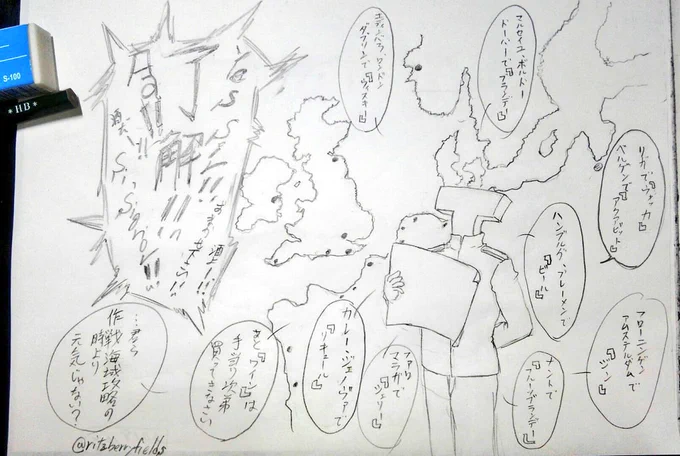 マルセイユ、ボルドー
ドーバーで
『ブランデー』
エディンバラ、ロンドン
ダブリンで『ウィスキー』
リガで『ウォッカ』
ベルゲンで
『アクアビット』
ハンブルグ、ブレーメンで
『ビール』
フローニンゲン
アムステルダムで
『ジン』
ナントで
『フルーツブランデー』
ファロ
マラガで
『シェリー』
カレー・ジェノヴァで
『リキュール』
あと『ワイン』は
手当り次第
買ってきなさい
…君ら
作戦海域攻略の
時より
元気じゃない?
了解!!!
Yes Sir!!
Ja!!
Si, Signore!!
酒!!
@ritzberryfields
S-100
*HB*